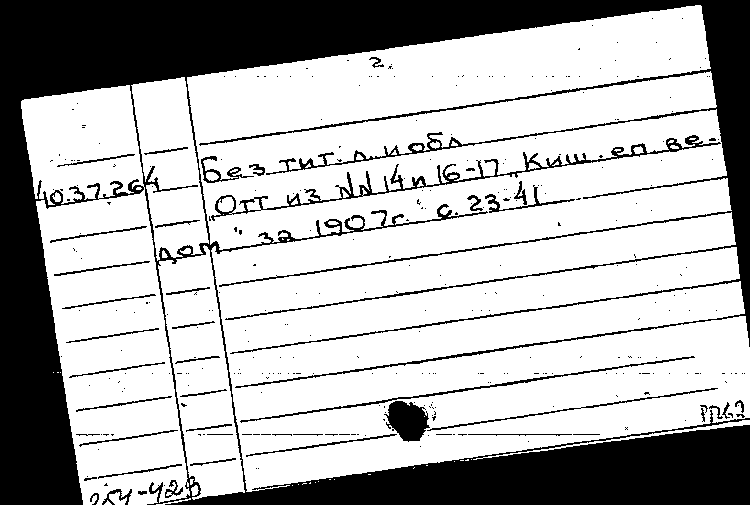 2.
40.37.264 Без тит. л. и обл
"Отт из NN 14 и 16-17 "Киш. еп. ве-
дом" за 1907г." с. 23-41
254-429